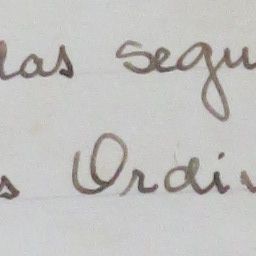 las segu
s Ordi